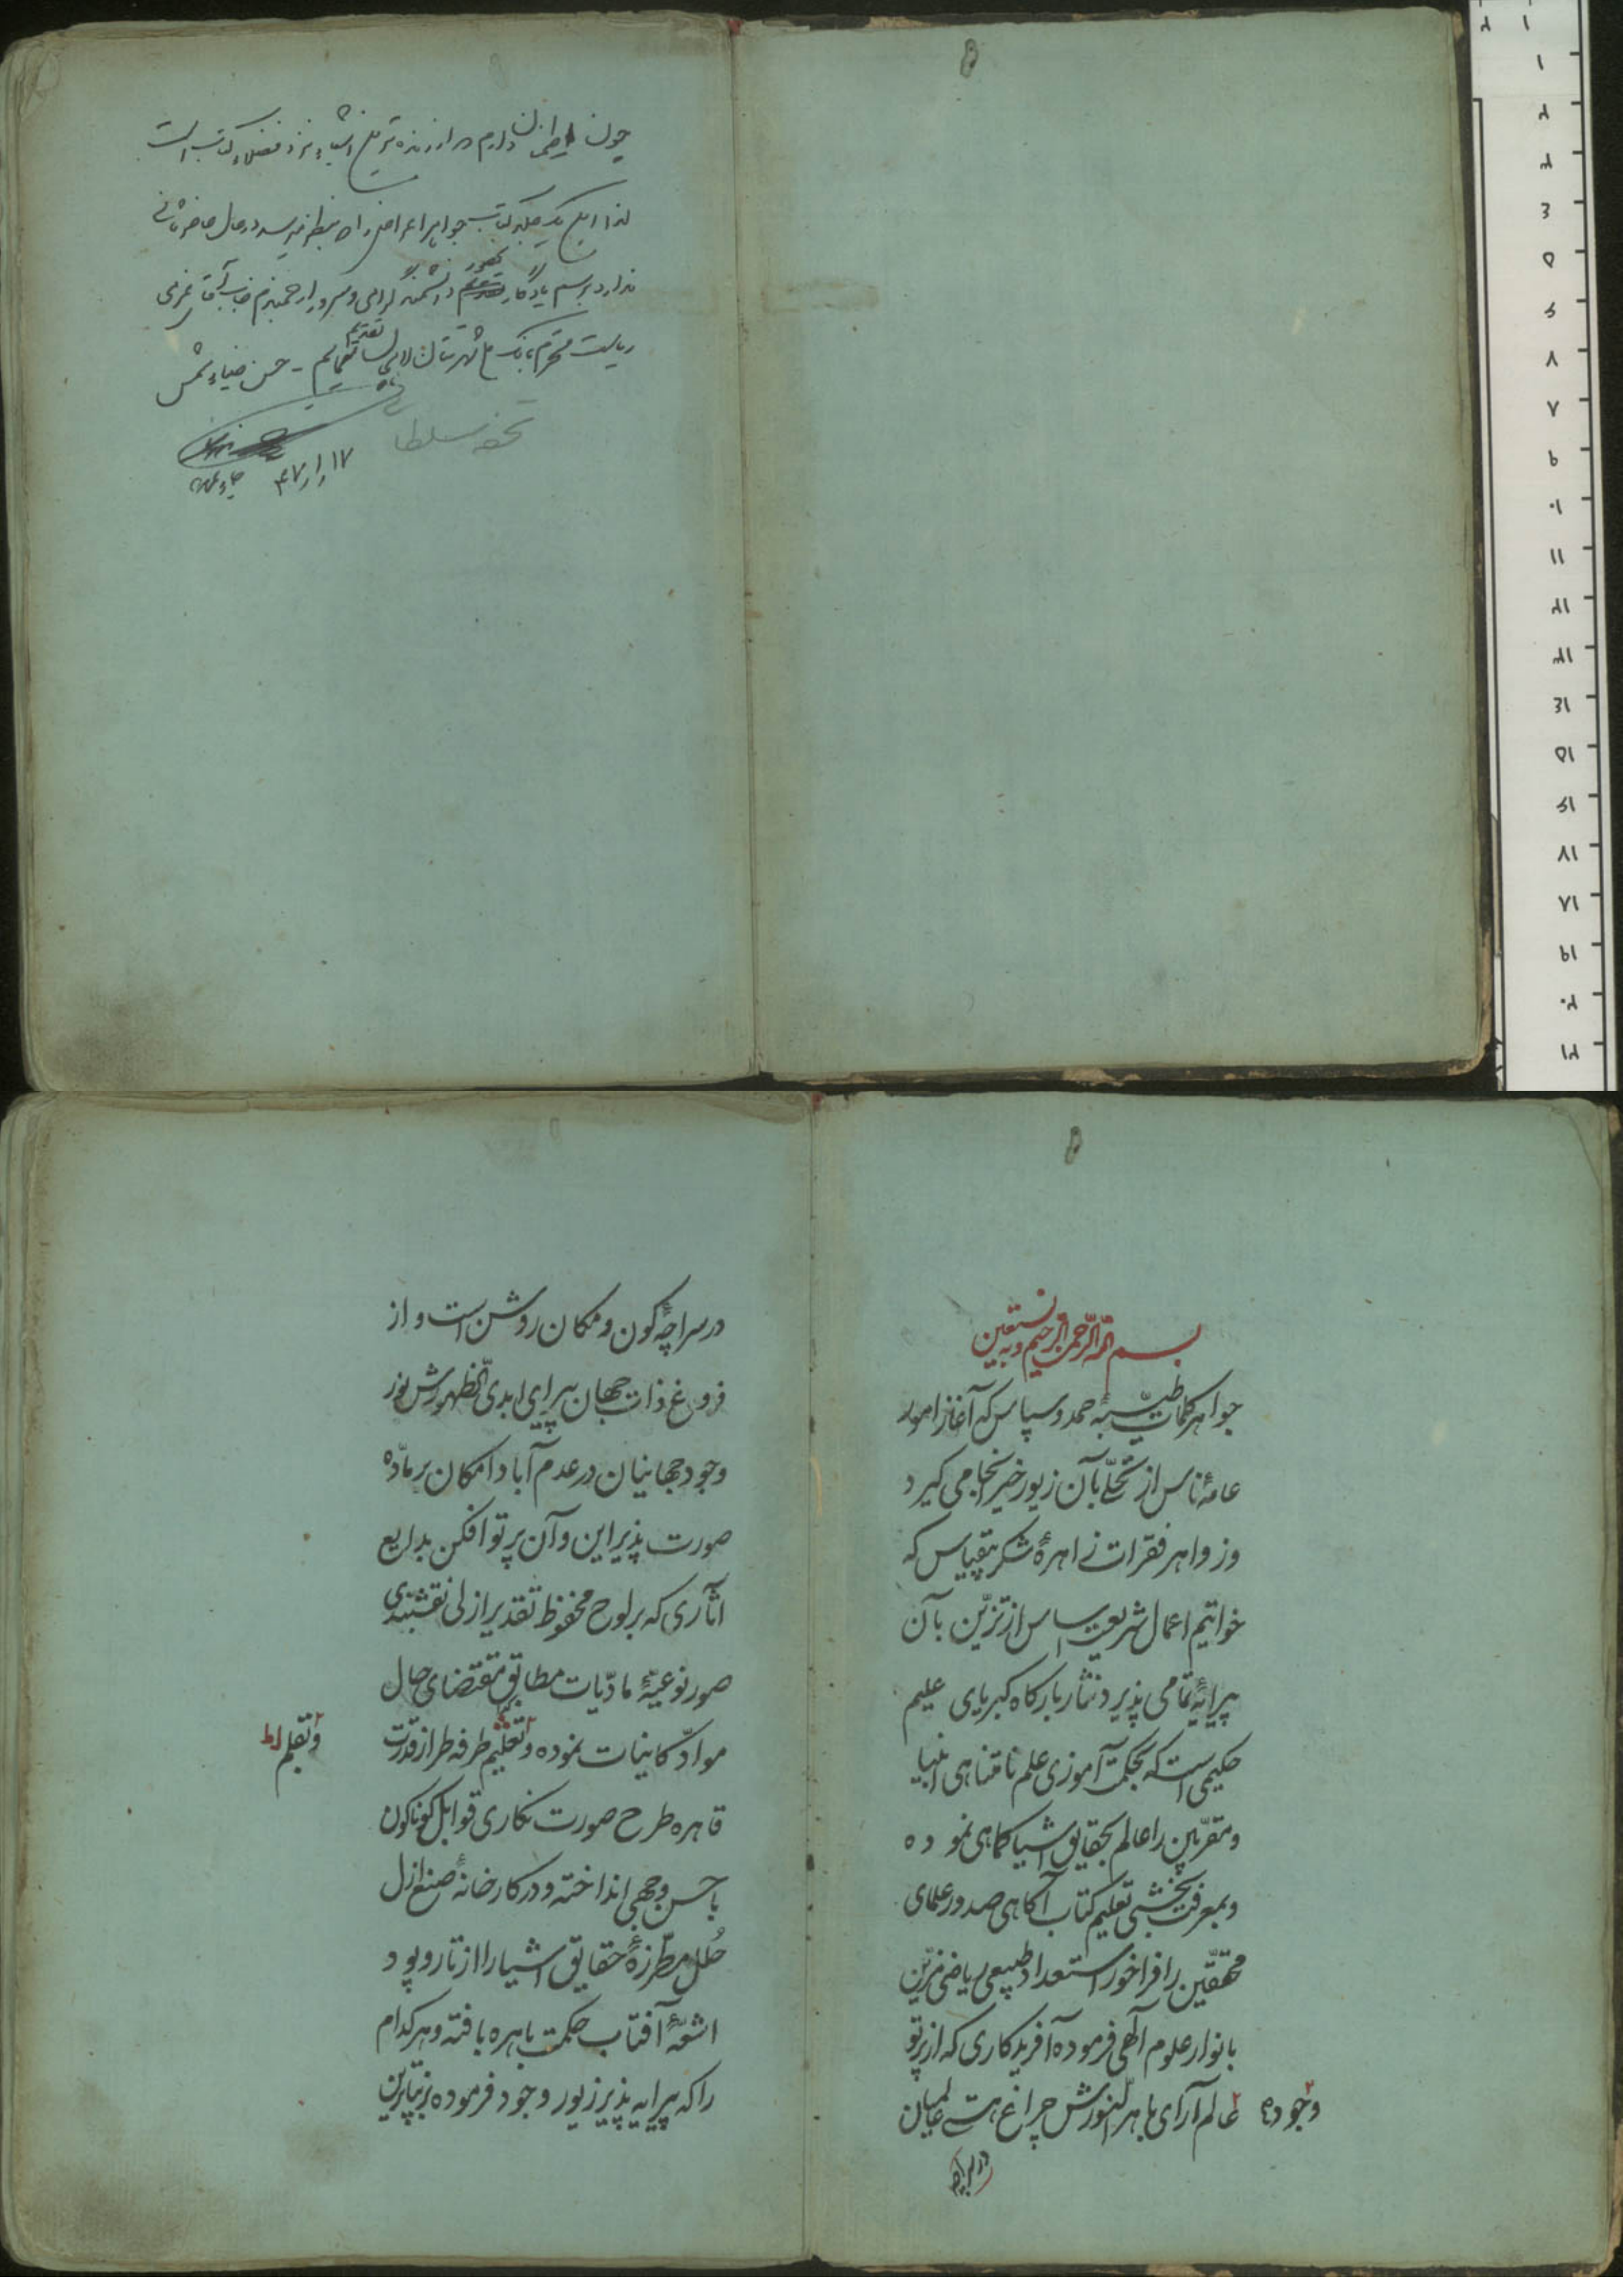 چون اطمینان دارم که ارزنده ترین اشیاء نزد فضلاء کتاب است
لذا این یک جلد کتاب جواهر را که بنظر میرسد در حال حاضر ثانی
ندارد برسم یادگار بحضور دانشمند گرامی و سرور ارجمندم جناب آقای
ریاست محترم بانک شهرستان تقدیم مینمایم - حسن ضیاء شمس
تحفه سلطا
۱۷ ر ۱ ر ۴۷
بسم الله الرحمن الرحیم و به نستعین
جواهر کلمات طیّبهٔ حمد و سپاس که آغاز امور
عامهٔ ناس از تحلّی بآن زیور خیر انجامی گیرد
و زواهر فقرات زاهرهٔ شکر بیقیاس که
خواتیم اعمال شریعت اساس از تزیّن بآن
پیرایهٔ تمامی پذیرد نثار بارکاه کبریای علیم
حکیمی است که بحکمت آموزی علم نامتناهی انبیا
و مقرّبین را عالم بحقایق اشیا کماهی نموده
و بمعرفت بخشی تعلیم کتاب آکاهی صدور علمای
محققین را فراخور استعداد طبیعی ریاضی مزیّن
بانوار علوم آلهی فرموده آفریدکاری که از پرتو
وجوده عالم آرای باهر النورش چراغ هستی عالمیان
در سراچه
در سراچهٔ کون و مکان روشن است و از
فروغ ذات جهان پیرای ابدی الظهورش نور
وجود جهانیان در عدم آباد امکان بر مادّه
صورت پذیر این و آن پرتو افکن بدایع
آثاری که بر لوح محفوظ تقدیر ازلی نقشبندی
صور نوعیّهٔ مادّیات مطابق مقتضای حال
موادّ کاینات نموده و تعلیم طرفه طراز قدرت
و تقلم
قاهره طرح صورت نکاری قوابل کوناکون
باحسن وجهی انداخته و در کارخانهٔ صنع ازل
حُلل مطرّزهٔ حقایق اشیا را از تار و پود
اشعّهٔ آفتاب حکمت باهره بافته و هر کدام
را که پیرایه پذیر زیور وجود فرموده بزیباترین